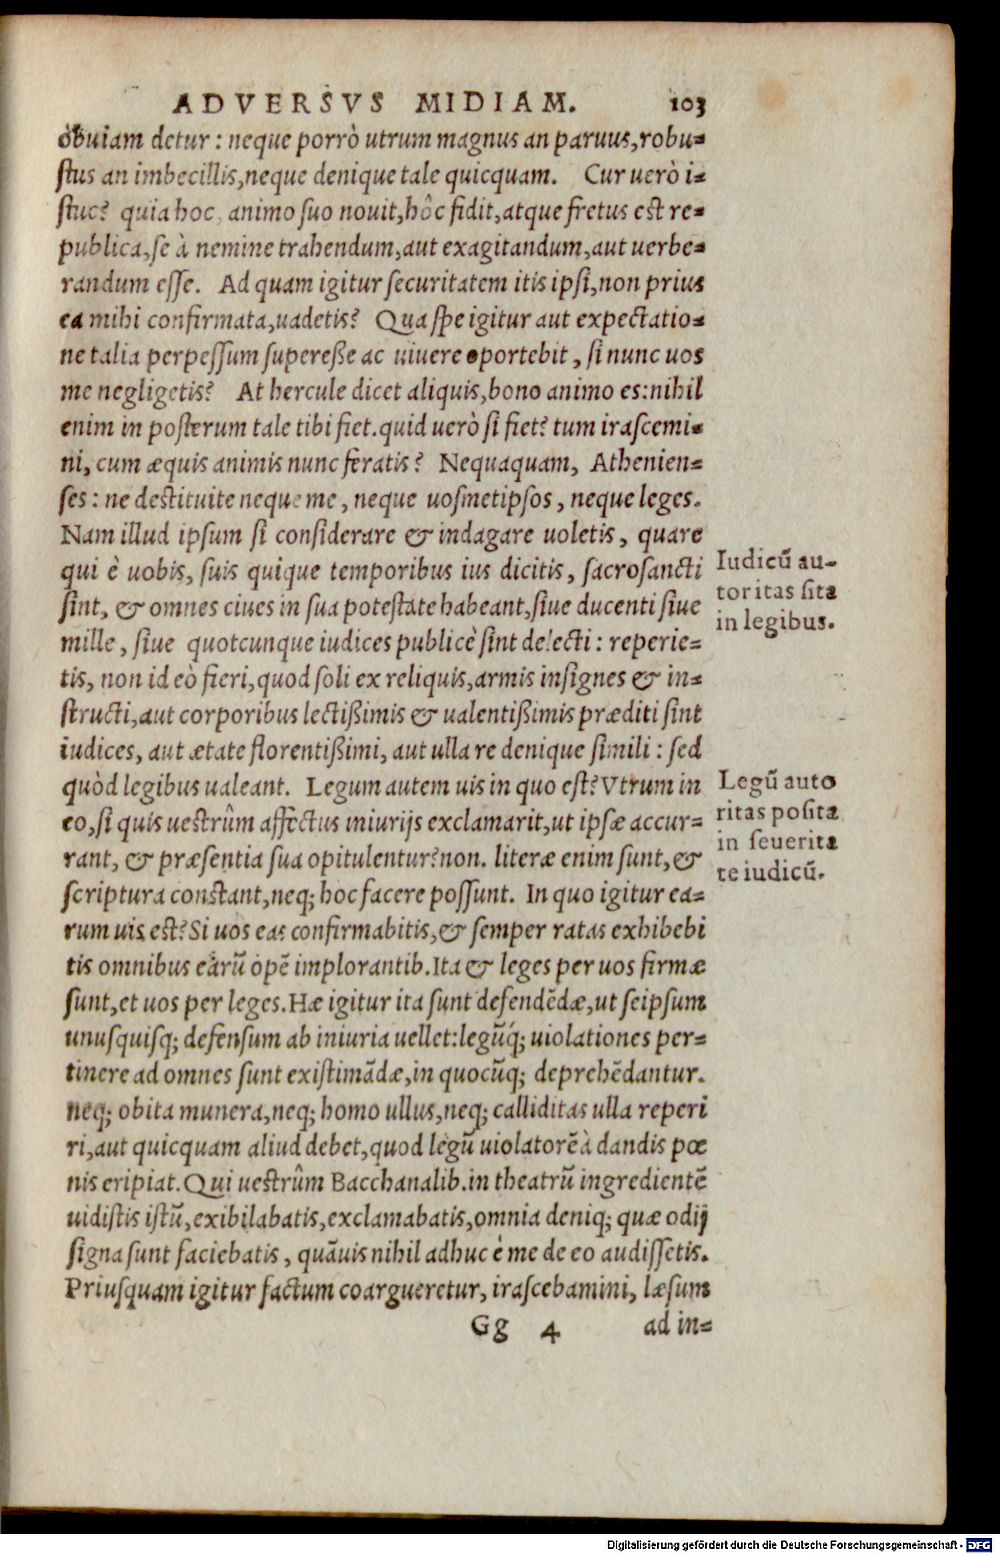 ADVERSVS MIDIAM. 103
obuiam detur : neque porrò utrum magnus an paruus, robu=
stus an imbecillis, neque denique tale quicquam. Cur uerò i=
stuc? quia hoc animo suo nouit, hôc fidit, atque fretus est re=
publica, se à nemine trahendum, aut exagitandum, aut uerbe=
randum esse. Ad quam igitur securitatem itis ipsi, non prius
ea mihi confirmata, uadetis? Qua spe igitur aut expectatio=
ne talia perpessum superesse ac uiuere oportebit, si nunc uos
me negligetis? At hercule dicet aliquis, bono animo es: nihil
enim in posterum tale tibi fiet. quid uerò si fiet? tum irascemi=
ni, cum æquis animis nunc feratis? Nequaquam, Athenien=
ses : ne destituite neque me, neque uosmetipsos, neque leges.
Nam illud ipsum si considerare & indagare uoletis, quare
qui è uobis, suis quique temporibus ius dicitis, sacrosancti
sint, & omnes ciues in sua potestate habeant, siue ducenti siue
mille, siue quotcunque iudices publicè sint delecti : reperie=
tis, non id eò fieri, quod soli ex reliquis, armis insignes & in=
structi, aut corporibus lectißimis & ualentißimis præditi sint
iudices, aut ætate florentißimi, aut ulla re denique simili : sed
quòd legibus ualeant. Legum autem uis in quo est? Vtrum in
eo, si quis uestrûm affectus iniurijs exclamarit, ut ipsæ accur=
rant, & præsentia sua opitulentur? non. literæ enim sunt, &
scriptura constant, neq; hoc facere possunt. In quo igitur ea=
rum uis est? Si uos eas confirmabitis, & semper ratas exhibebi
tis omnibus earū opē implorantib. Ita & leges per uos firmæ
sunt, et uos per leges. Hæ igitur ita sunt defendēdæ, ut seipsum
unusquisq; defensum ab iniuria uellet: legūq́; uiolationes per=
tinere ad omnes sunt existimādæ, in quocūq; deprehēdantur.
neq; obita munera, neq; homo ullus, neq; calliditas ulla reperi
ri, aut quicquam aliud debet, quod legū uiolatorē à dandis pœ
nis eripiat. Qui uestrûm Bacchanalib. in theatrū ingredientē
uidistis istū, exibilabatis, exclamabatis, omnia deniq; quæ odij
signa sunt faciebatis, quāuis nihil adhuc è me de eo audissetis.
Priusquam igitur factum coargueretur, irascebamini, læsum
Gg 4 ad in=
Iudicū au-
toritas sita
in legibus.
Legū auto
ritas posita
in seuerita
te iudicū.
Digitalisierung gefördert durch die Deutsche Forschungsgemeinschaft - DFG